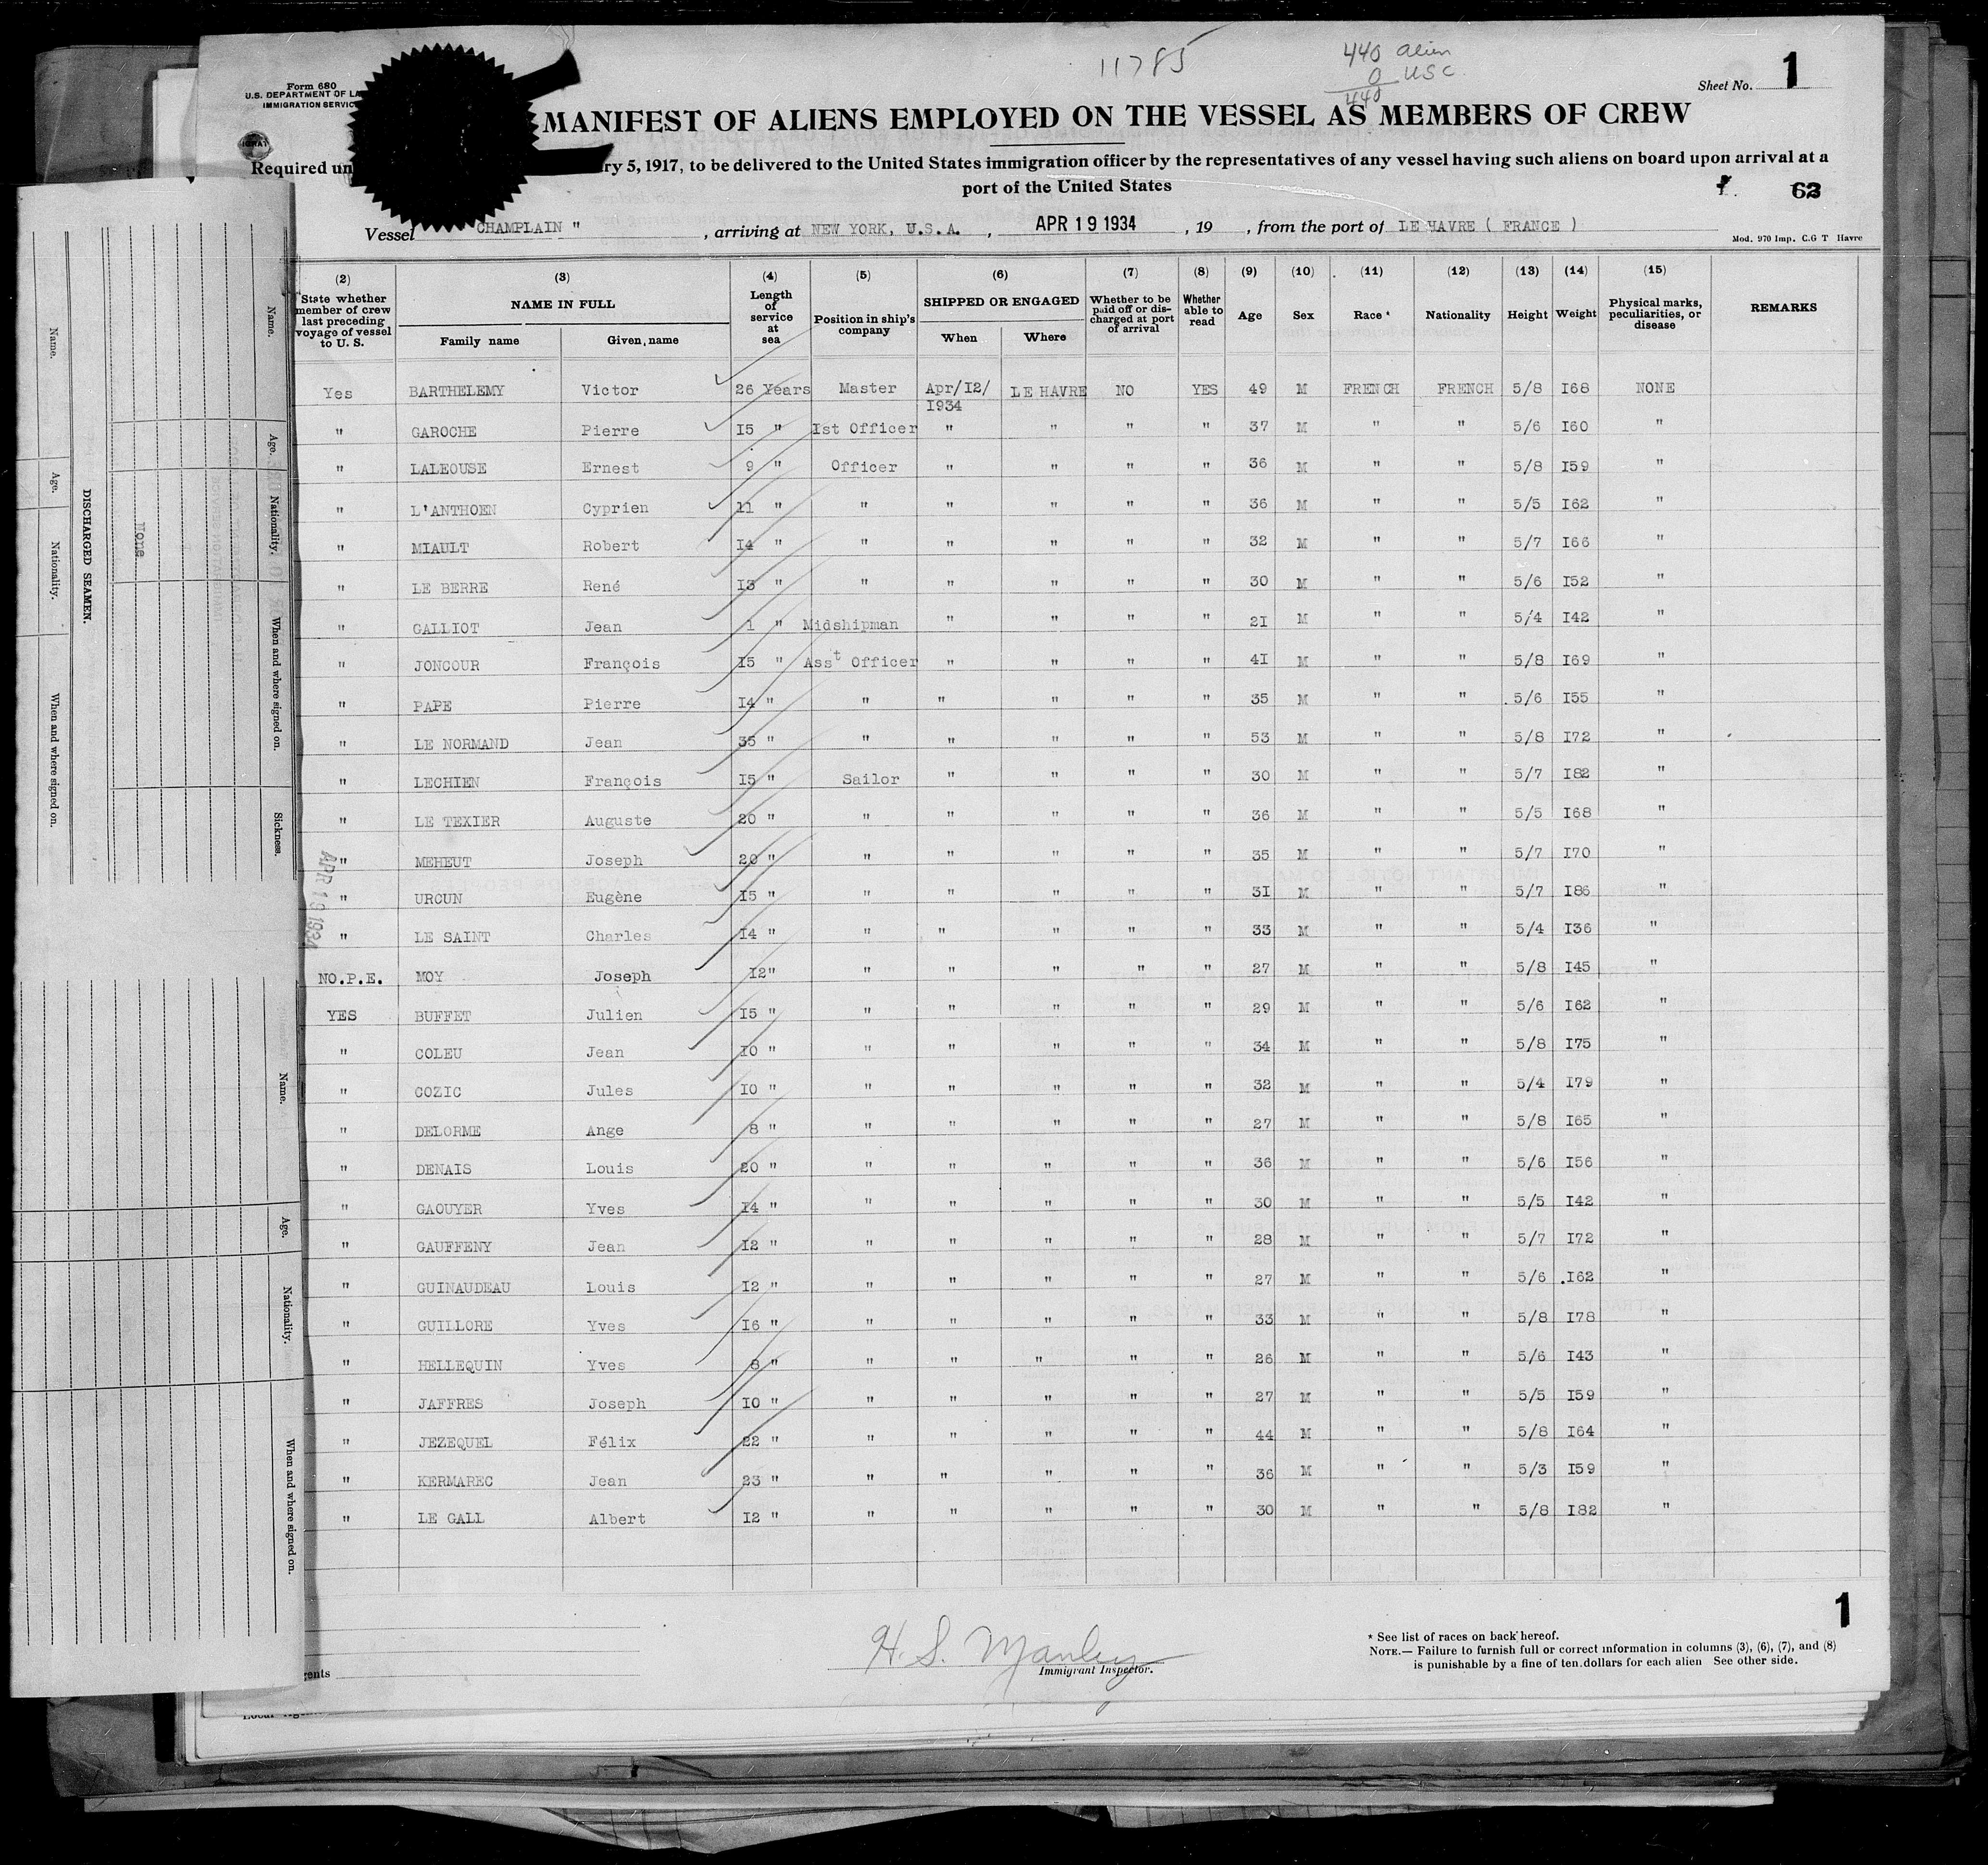 11785
440 alien
0 USC.
440
Sheet No. 1
Form 680
U.S. DEPARTMENT OF LA
IMMIGRATION SERVIC
MANIFEST OF ALIENS EMPLOYED ON THE VESSEL AS MEMBERS OF CREW
Required un ry 5, 1917, to be delivered to the United States immigration officer by the representatives of any vessel having such aliens on board upon arrival at a
port of the United States
62
Vessel CHAMPLAIN " , arriving at NEW YORK, U.S.A. , APR 19 1934 , 19 , from the port of LE HAVRE ( FRANCE )
Mod. 970 Imp. C.G T Havre
(2) (3) (4) (5) (6) (7) (8) (9) (10) (11) (12) (13) (14) (15)
State whether member of crew last preceding voyage of vessel to U. S. NAME IN FULL Family name Given name Length of service at sea Position in ship's company SHIPPED OR ENGAGED When Where Whether to be paid off or discharged at port of arrival Whether able to read Age Sex Race * Nationality Height Weight Physical marks, peculiarities, or disease REMARKS
Yes BARTHELEMY Victor 26 Years Master Apr/I2/ I934 LE HAVRE NO YES 49 M FRENCH FRENCH 5/8 I68 NONE
" GAROCHE Pierre I5 " Ist Officer " " " " 37 M " " 5/6 I60 "
" LALEOUSE Ernest 9 " Officer " " " " 36 M " " 5/8 I59 "
" L'ANTHOEN Cyprien 11 " " " " " " 36 M " " 5/5 I62 "
" MIAULT Robert I4 " " " " " " 32 M " " 5/7 I66 "
" LE BERRE René I3 " " " " " " 30 M " " 5/6 I52 "
" GALLIOT Jean 1 " Midshipman " " " " 2I M " " 5/4 I42 "
" JONCOUR François I5 " Asst Officer " " " " 4I M " " 5/8 I69 "
" PAPE Pierre I4 " " " " " " 35 M " " 5/6 I55 "
" LE NORMAND Jean 35 " " " " " " 53 M " " 5/8 I72 "
" LECHIEN François I5 " Sailor " " " " 30 M " " 5/7 I82 "
" LE TEXIER Auguste 20 " " " " " " 36 M " " 5/5 I68 "
" MEHEUT Joseph 20 " " " " " " 35 M " " 5/7 I70 "
" URCUN Eugène I5 " " " " " " 3I M " " 5/7 I86 "
" LE SAINT Charles I4 " " " " " " 33 M " " 5/4 I36 "
NO.P.E. MOY Joseph I2" " " " " " 27 M " " 5/8 I45 "
YES BUFFET Julien I5 " " " " " " 29 M " " 5/6 I62 "
" COLEU Jean IO " " " " " " 34 M " " 5/8 I75 "
" COZIC Jules IO " " " " " " 32 M " " 5/4 I79 "
" DELORME Ange 8 " " " " " " 27 M " " 5/8 I65 "
" DENAIS Louis 20 " " " " " " 36 M " " 5/6 I56 "
" GAOUYER Yves I4 " " " " " " 30 M " " 5/5 I42 "
" GAUFFENY Jean I2 " " " " " " 28 M " " 5/7 I72 "
" GUINAUDEAU Louis I2 " " " " " " 27 M " " 5/6 I62 "
" GUILLORE Yves I6 " " " " " " 33 M " " 5/8 I78 "
" HELLEQUIN Yves 8 " " " " " " 26 M " " 5/6 I43 "
" JAFFRES Joseph IO " " " " " " 27 M " " 5/5 I59 "
" JEZEQUEL Félix 22 " " " " " " 44 M " " 5/8 I64 "
" KERMAREC Jean 23 " " " " " " 36 M " " 5/3 I59 "
" LE GALL Albert I2 " " " " " " 30 M " " 5/8 I82 "
APR 19 1934
H. S. Manley
Immigrant Inspector.
1
* See list of races on back hereof.
NOTE.— Failure to furnish full or correct information in columns (3), (6), (7), and (8)
is punishable by a fine of ten dollars for each alien See other side.
gents
Name. Age. Nationality. When and where signed on.
DISCHARGED SEAMEN.
None
Name. Age. Nationality. When and where signed on. Sickness.
Name. Age. Nationality. When and where signed on.